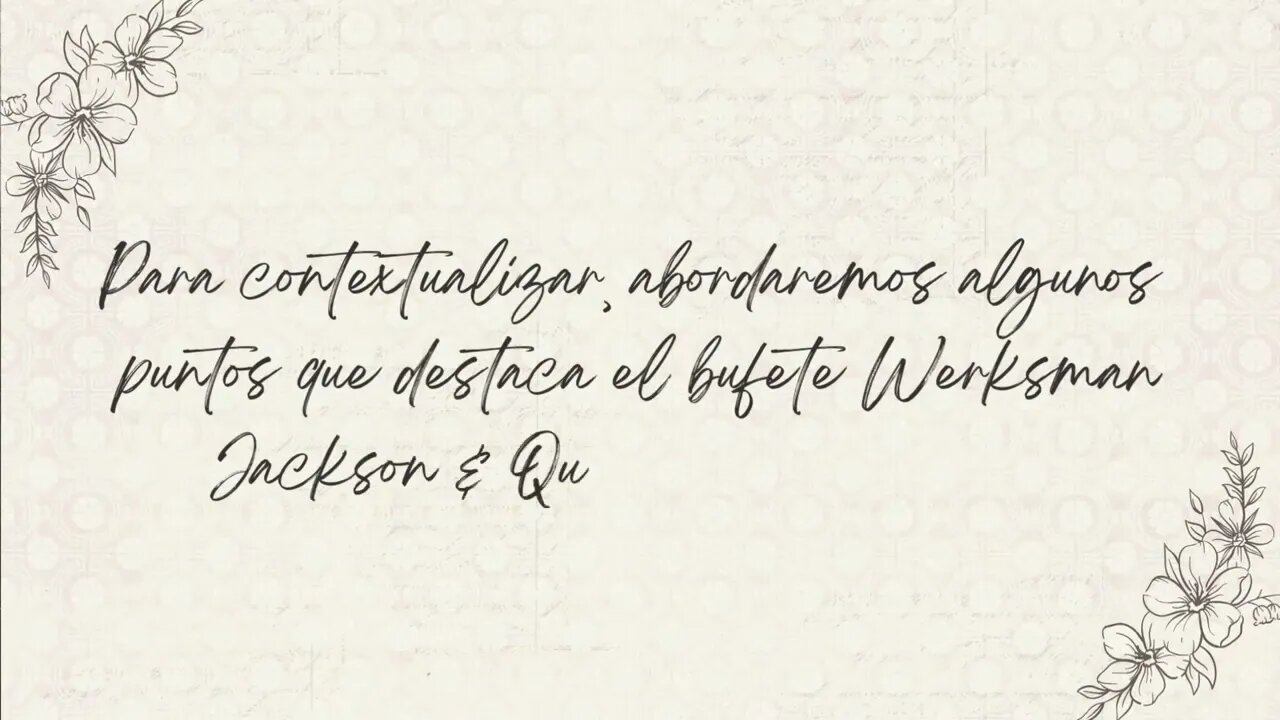 Para contextualizar, abordaremos algunos
puntos que destaca el bufete Werksman
Jackson & Qu